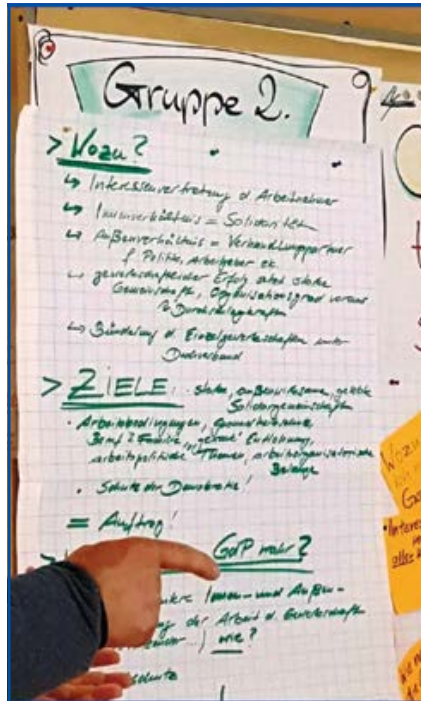 Gruppe 2.
> Wozu?
↳ Interessenvertretung d Arbeitnehmer
↳ Innenverhältnis = Solidarität
↳ Außenverhältnis = Verhandlungspartner
f. Politik, Arbeitgeber etc.
↳ gewerkschaftlicher Erfolg setzt starke
Gemeinschaft, Organisationsgrad voraus
Durchschlagskraft
↳ Bündelung d. Einzelgewerkschaften unter
Dachverband
> ZIELE: starke, außenwirksame, gelebte
Solidargemeinschaften
• Arbeitsbedingungen, Gesundheitsschutz
Beruf & Familie, Entlohnung,
arbeitspolitische Themen, arbeitsorganisatorische
Belange
• Schutz der Demokratie!
= Auftrag!
GdP mehr?
Innen- und Außen-
der Arbeit d. Gewerkschaft
wie?
schutz
Wozu
Interes
alles